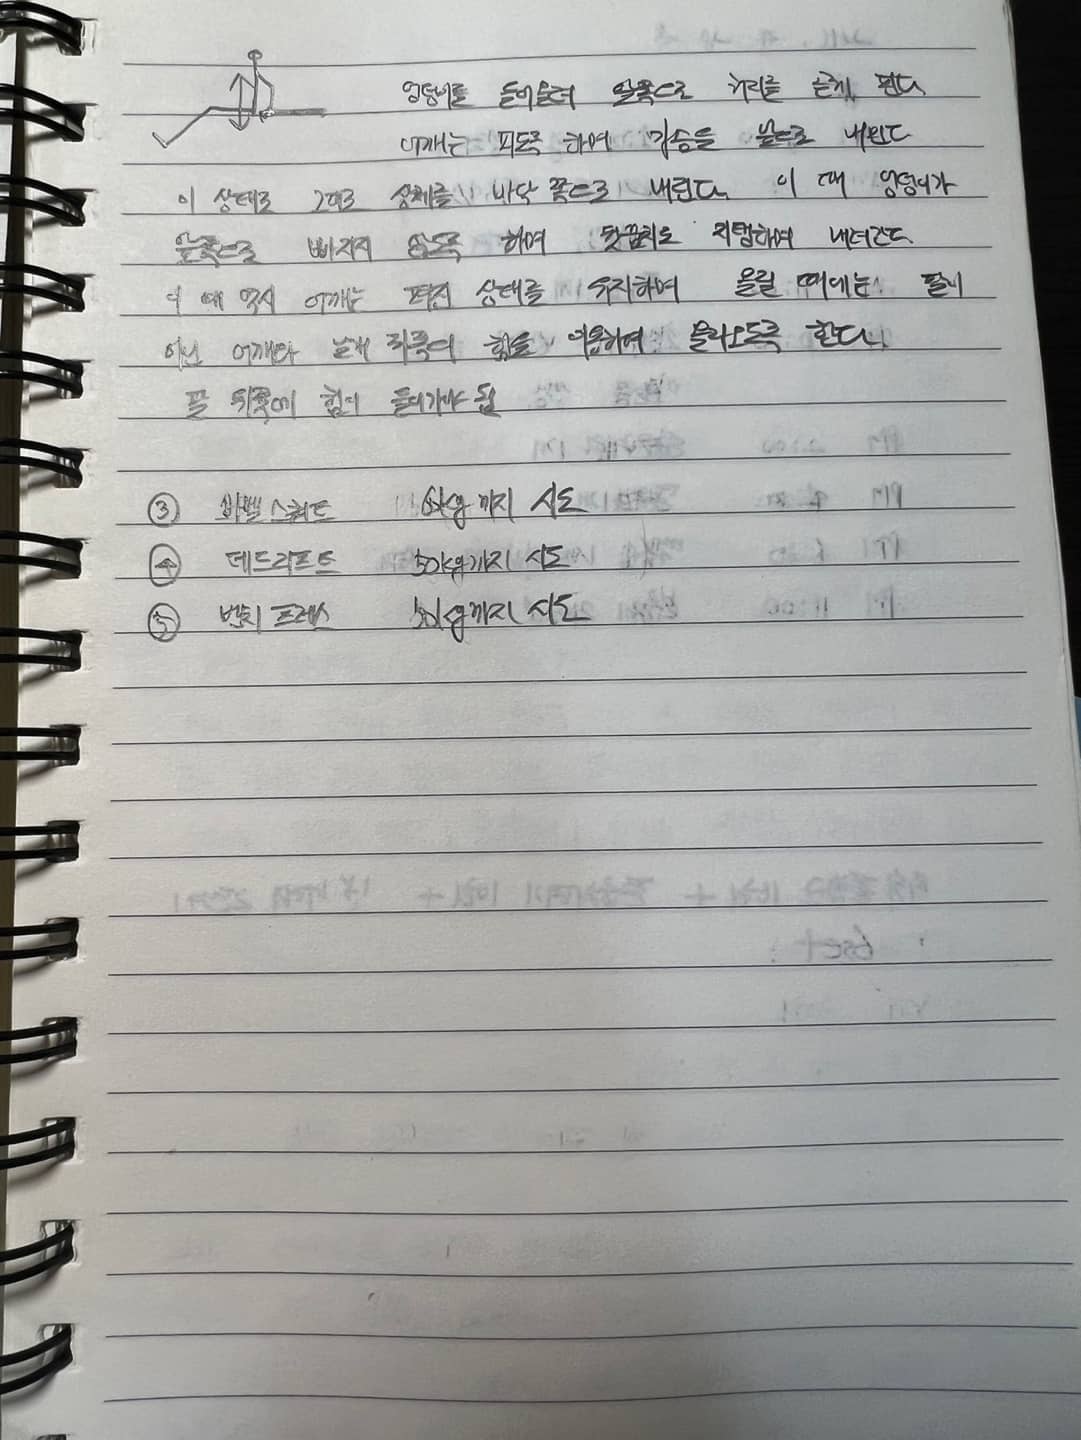 엉덩이를 들어올려 앞쪽으로 허리를 곧게 편다
어깨는 펴도록 하여 가슴을 앞으로 내민다
이 상태로 그대로 상체를 바닥 쪽으로 내린다. 이 때 엉덩이가
앞쪽으로 빠지지 않도록 하며 뒷꿈치로 지탱하며 내려간다
이 때 역시 어깨는 펴진 상태를 유지하며 올릴 때에는 팔이
아닌 어깨와 날개 쪽의 힘을 이용하여 올라오도록 한다.
팔 뒤쪽에 힘이 들어가야 됨
③ 바벨 스쿼트 60kg까지 시도
④ 데드리프트 50kg까지 시도
⑤ 벤치 프레스 50kg까지 시도